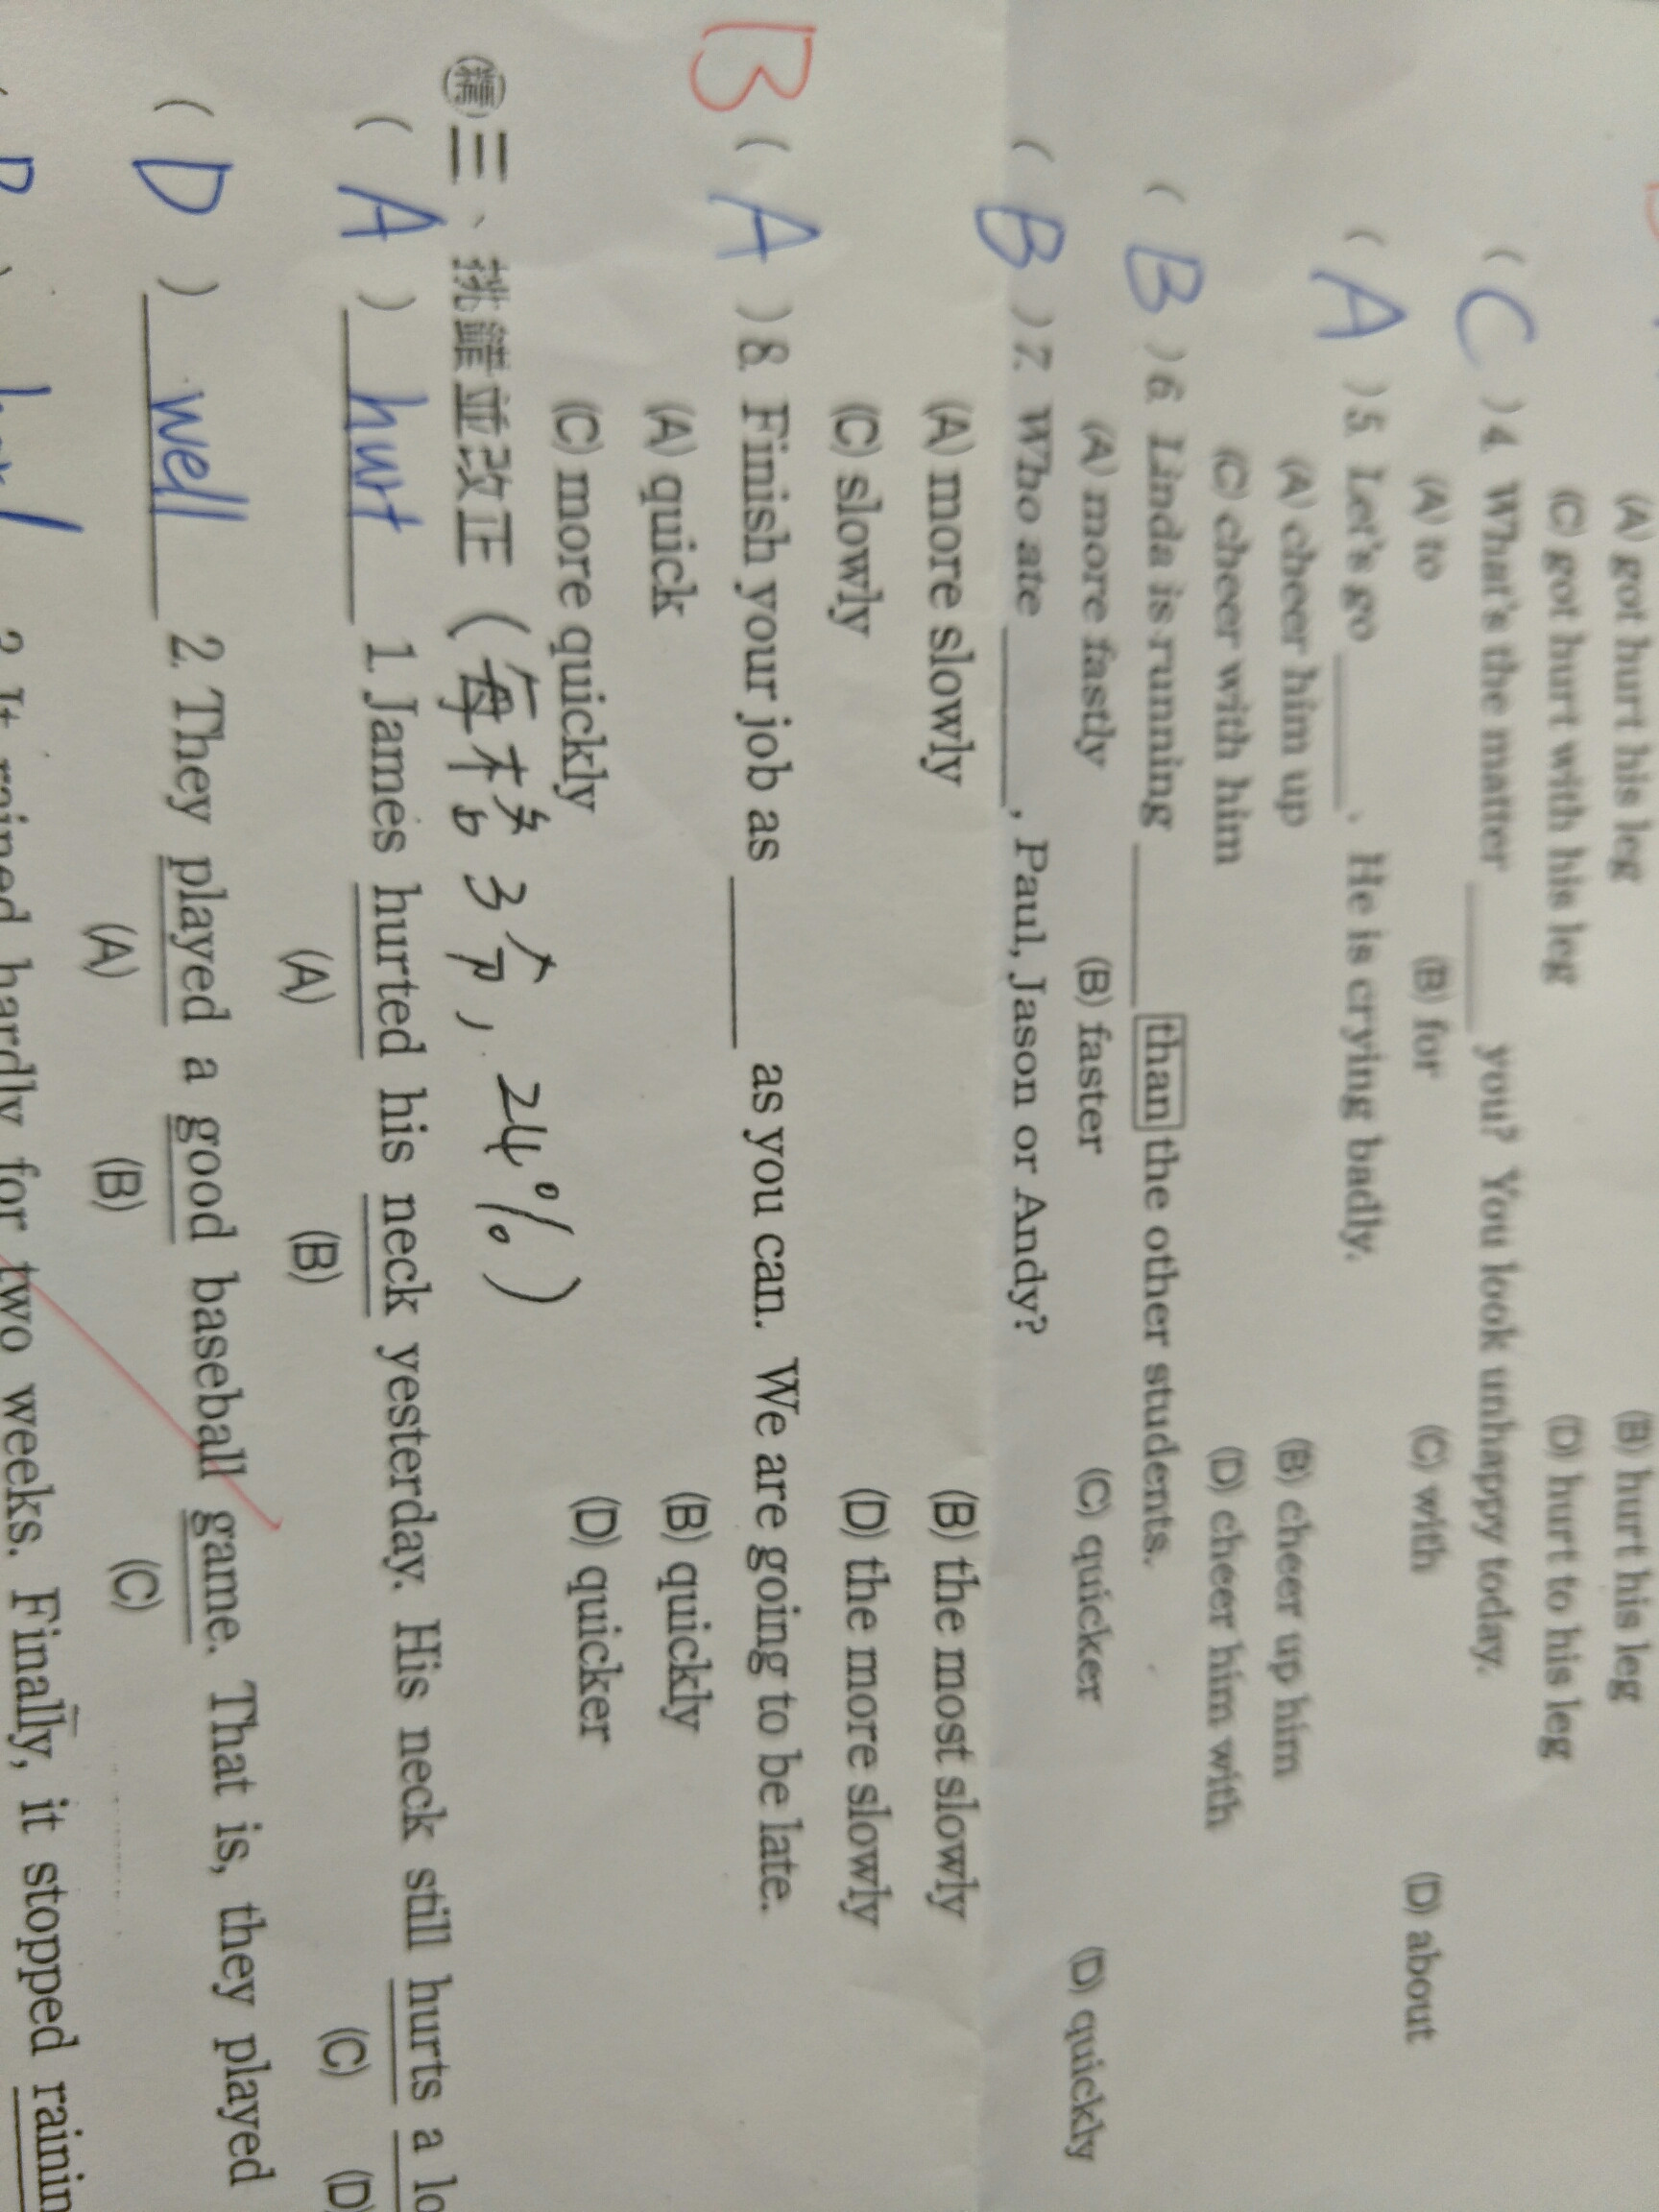 (A) got hurt his leg (B) hurt his leg
(C) got hurt with his leg (D) hurt to his leg
( C ) 4. What's the matter ______ you? You look unhappy today.
(A) to (B) for (C) with (D) about
( A ) 5. Let's go ______. He is crying badly.
(A) cheer him up (B) cheer up him
(C) cheer with him (D) cheer him with
( B ) 6. Linda is running ______ than the other students.
(A) more fastly (B) faster (C) quicker (D) quickly
( B ) 7. Who ate ______, Paul, Jason or Andy?
(A) more slowly (B) the most slowly
(C) slowly (D) the more slowly
B ( A ) 8. Finish your job as ______ as you can. We are going to be late.
(A) quick (B) quickly
(C) more quickly (D) quicker
三、挑錯並改正 (每格3分, 24%)
( A ) hurt 1. James hurted his neck yesterday. His neck still hurts a lo
(A) (B) (C) (D)
( D ) well 2. They played a good baseball game. That is, they played
(A) (B) (C)
It rained hardly for two weeks. Finally, it stopped rainin